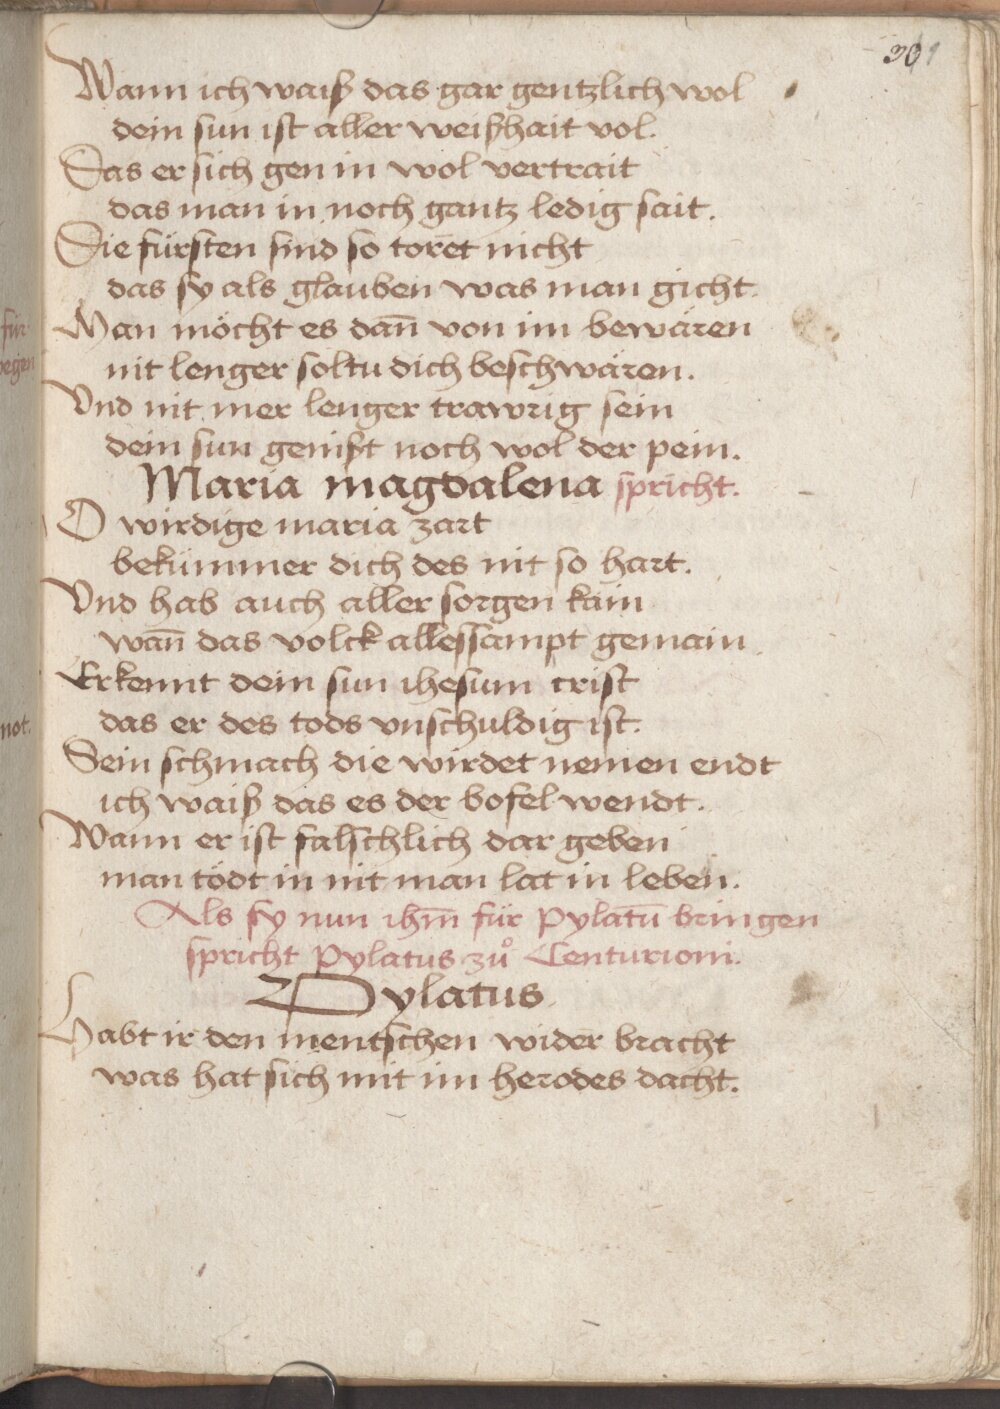 301
Wann ich waiß das gar gentzlich wol
dein sun ist aller weißhait vol.
Das er sich gen in wol vertrait
das man in noch gantz ledig sait.
Die fürsten sind so toret nicht
das sy als glauben was man gicht.
Man möcht es dan̄ von im bewären
nit lenger soltu dich beschwären.
Vnd nit mer lenger trawrig sein
dein sun genißt noch wol der pein.
Maria magdalena spricht.
O wirdige maria zart
bekümmer dich des nit so hart.
Vnd hab auch aller sorgen kain
wan̄ das volck allessampt gemain
Erkennt dein sun ihesum crist
das er des tods vnschuldig ist.
Sein schmach die wirdet nemen endt
ich waiß das es der bofel wendt.
Wann er ist falschlich dar geben
man tödt in nit man lat in leben.
Als sy nun ihm̄ für Pylatū bringen
spricht Pylatus zů Centurioni.
Pylatus
Habt ir den mentschen wider bracht
was hat sich mit im herodes dacht.
für
not.